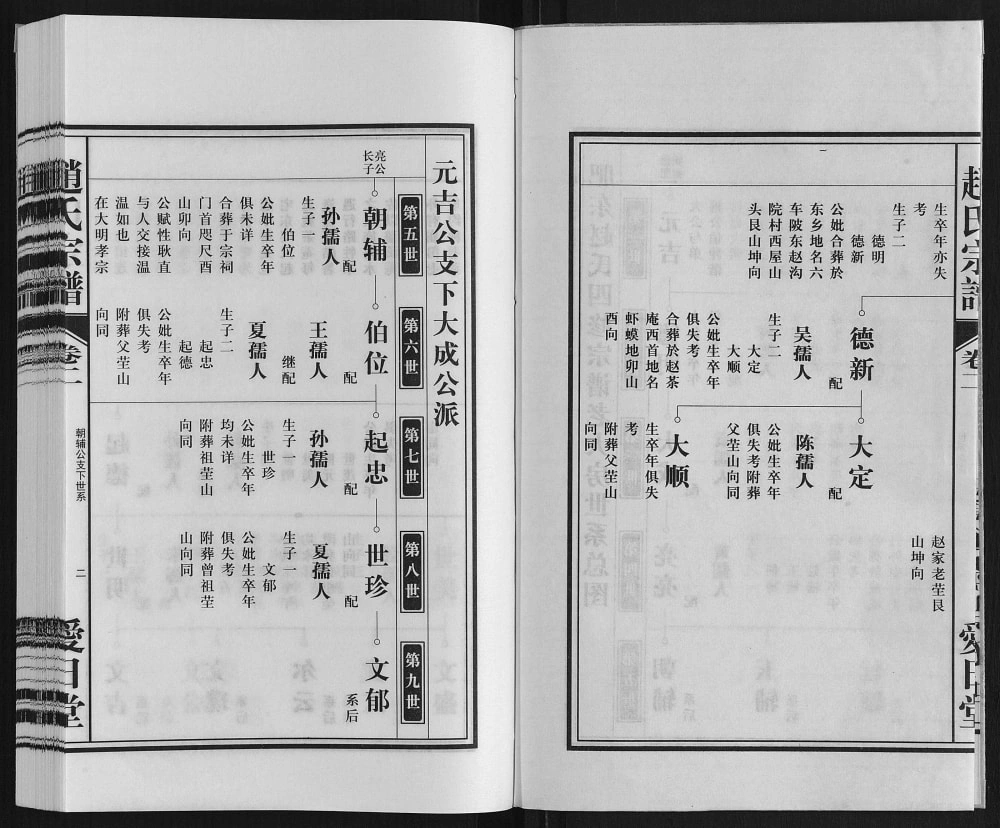 赵氏宗谱
卷二
爱日堂
生卒年亦失
考
生子二
德明
德新
公妣合葬於
东乡地名六
车陂东赵沟
院村西屋山
头艮山坤向
赵家老茔艮
山坤向
德新
配
吴孺人
生子二
大定
大顺
公妣生卒年
俱失考
合葬於赵茶
庵西首地名
虾蟆地卯山
酉向
大定
配
陈孺人
公妣生卒年
俱失考附葬
父茔山向同
大顺
生卒年俱失
考
附葬父茔山
向同
元吉公支下大成公派
第五世
第六世
第七世
第八世
第九世
亮公
长子
朝辅
配
孙孺人
生子一
伯位
公妣生卒年
俱未详
合葬于宗祠
门首咫尺酉
山卯向
公赋性耿直
与人交接温
温如也
在大明孝宗
伯位
配
王孺人
继配
夏孺人
生子二
起忠
起德
公妣生卒年
俱失考
附葬父茔山
向同
起忠
配
孙孺人
生子一
世珍
公妣生卒年
均未详
附葬祖茔山
向同
世珍
配
夏孺人
生子一
文郁
公妣生卒年
俱失考
附葬曾祖茔
山向同
文郁
系后
赵氏宗谱
卷二
朝辅公支下世系
二
爱日堂